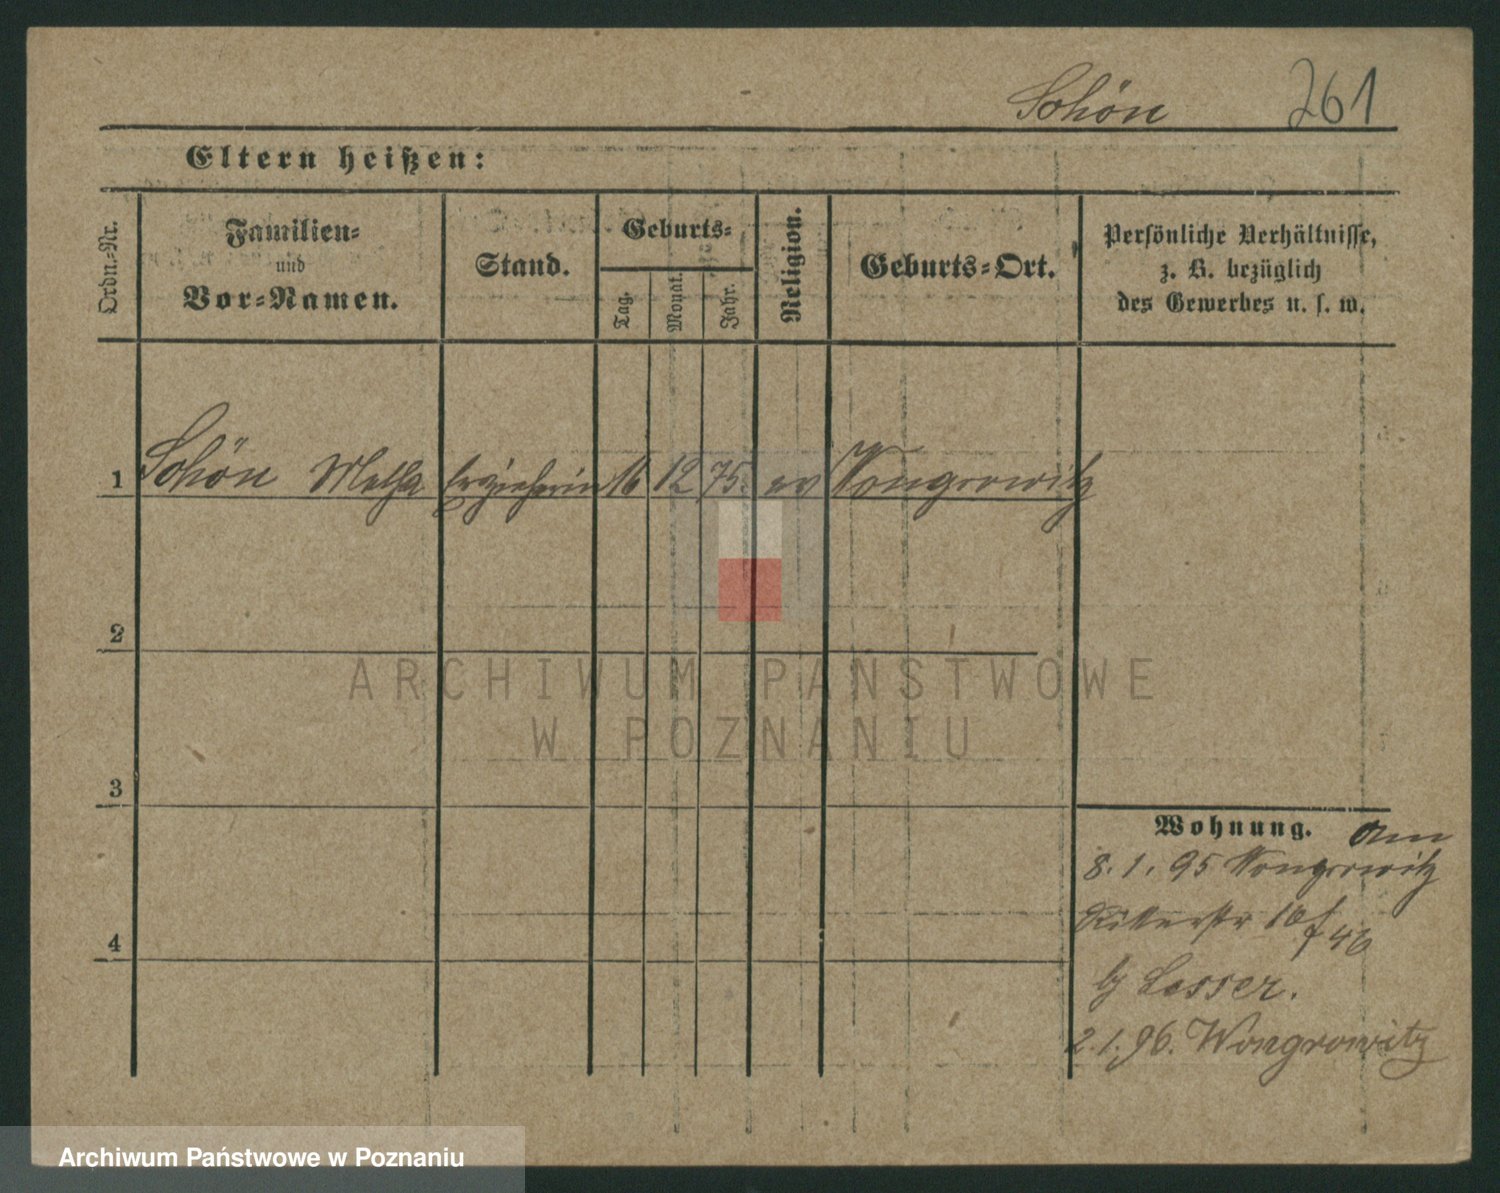 Schön 261
Eltern heißen:
Ordn.-Nr.
Familien-
und
Vor-Namen.
Stand.
Geburts-
Tag.
Monat.
Jahr.
Religion.
Geburts-Ort.
Persönliche Verhältnisse,
z. B. bezüglich
des Gewerbes u. s. w.
1 Schön Erzieherin 16 12 75. ev Wongrowitz
2
3
4
Wohnung. Am
8. 1. 95 Wongrowitz
Ritterstr 16
b/ Lesser.
2. 1. 96. Wongrowitz
ARCHIWUM PAŃSTWOWE
W POZNANIU
Archiwum Państwowe w Poznaniu